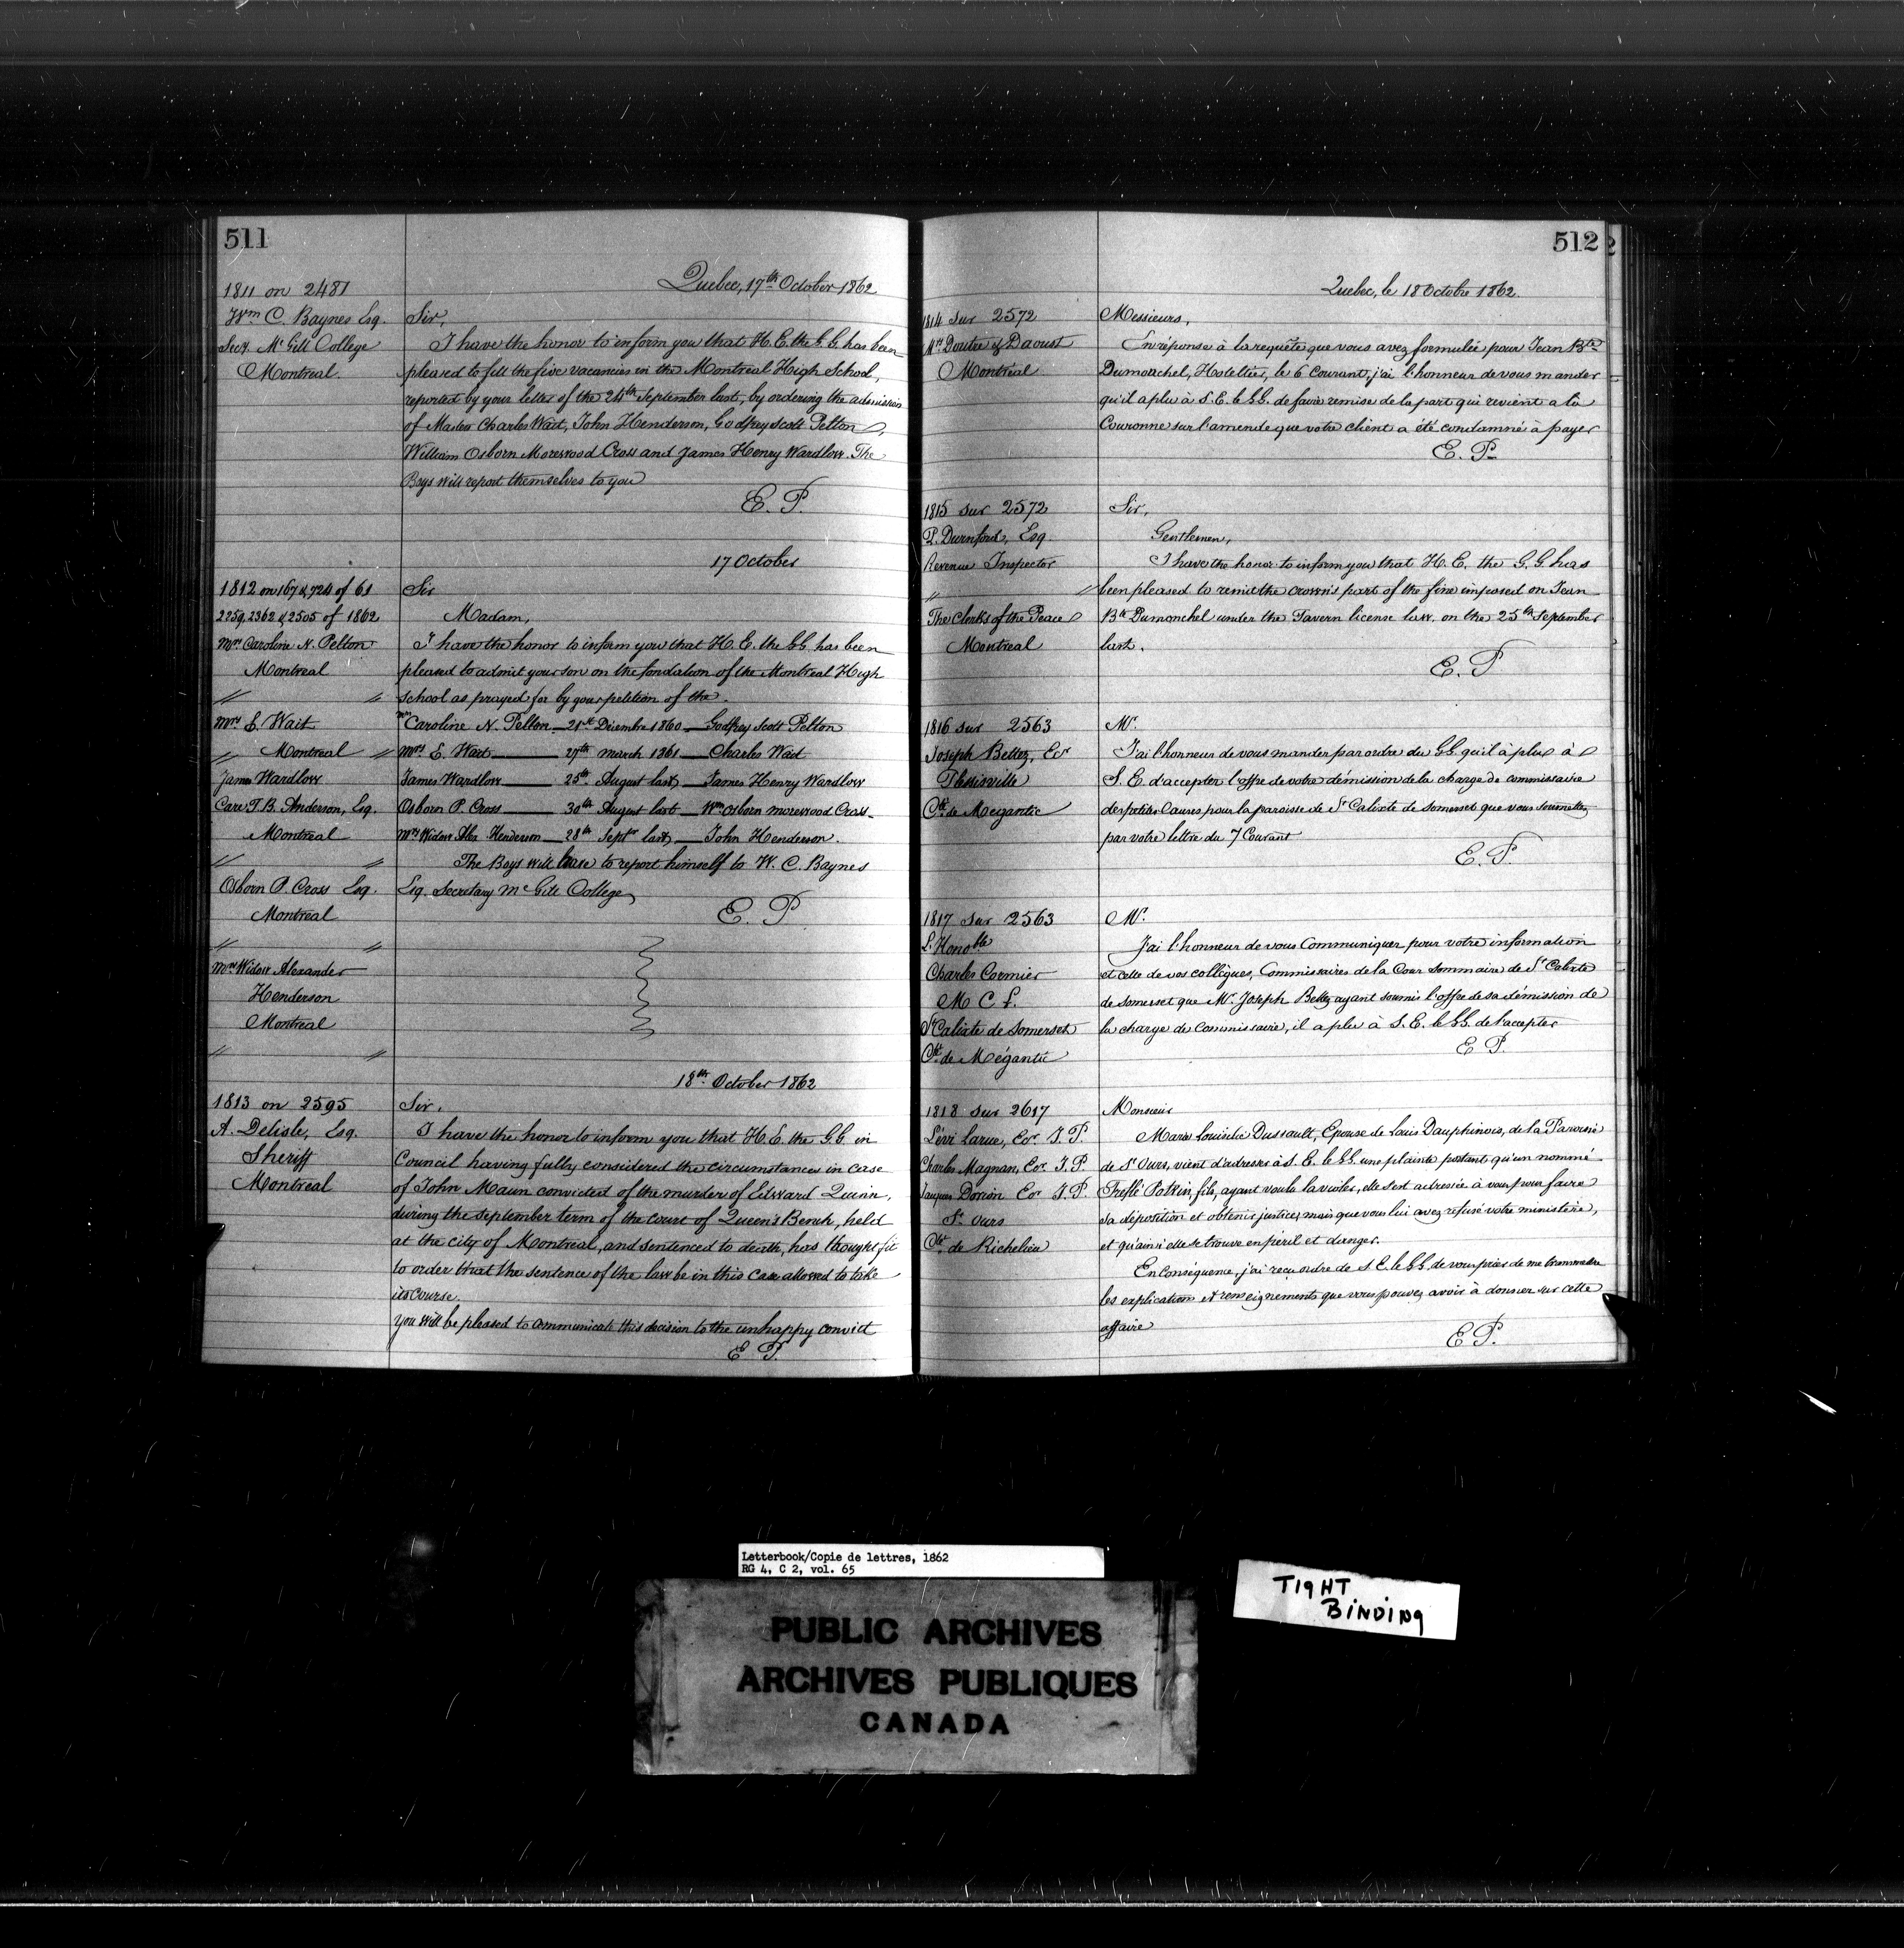 511
Quebec, 17th October 1862
1811 on 2481
Wm C. Baynes Esq.
Secy. Mc Gill College
Montreal.
Sir,
I have the honor to inform you that H. E. the G. G. has been
pleased to fill the five vacancies in the Montreal High School,
reported by your letter of the 24th September last, by ordering the admission
of Master Charles Wait, John Henderson, Godfrey Scott Pelton,
William Osborn Morewood Cross and James Henry Wardlow. The
Boys will report themselves to you
E. P.
17 October
1812 on 167 & 724 of 61
2259, 2362 & 2505 of 1862
Mrs Caroline N. Pelton
Montreal
" "
Mrs E. Wait
" Montreal "
James Wardlow
Care T. B. Anderson, Esq.
Montreal
" "
Osborn P. Cross Esq.
Montreal
" "
Mrs Widow Alexander
Henderson
Montreal
" "
Sir
Madam,
I have the honor to inform you that H. E. the G. G. has been
pleased to admit your son on the fondation of the Montreal High
school as prayed for by your petition of the
Mrs Caroline N. Pelton — 21st Diembre 1860 — Godfrey Scott Pelton
Mrs E. Wait — 27th march 1861 — Charles Wait
James Wardlow — 25th August last, — James Henry Wardlow
Osborn P. Cross — 30th August last — Wm Osborn morewood Cross —
Mrs Widow Alex Henderson — 28th Septr last, — John Henderson.
The Boys will have to report himself to W. C. Baynes
Esq. Secretary Mc Gill College
E. P
18th October 1862
1813 on 2595
A. Delisle, Esq.
Sheriff
Montreal
Sir,
I have the honor to inform you that H. E. the G. G. in
Council having fully considered the circumstances in case
of John Maun convicted of the murder of Edward Quinn,
during the september term of the court of Queen's Bench, held
at the city of Montreal, and sentenced to death, has thought fit
to order that the sentence of the law be in this case allowed to take
its course.
You will be pleased to communicate this decision to the unhappy convict
E P.
512
Quebec, le 18 Octobre 1862.
1814 sur 2572
Mrs Doutre & Daoust
Montréal
Messieurs,
En réponse à la requête que vous avez formulée pour Jean Bte
Dumouchel, Hotellier, le 6 Courant, j'ai l'honneur de vous mander
qu'il a plu à S. E. le G. G. de faire remise de la part qui revient a la
Couronne sur l'amende que votre client a été condamné à payer
E. P.
1815 sur 2572
P. Durnford, Esq.
Revenue Inspector
" "
The Clerks of the Peace
Montreal
Sir,
Gentlemen,
I have the honor to inform you that H. E. the G. G. has
been pleased to remit the crown's part of the fine imposed on Jean
Bte Dumouchel under the Tavern license law. on the 25th September
last.
E. P
1816 sur 2563
Joseph Bettez, Ecr
Plessisville
Cté de Megantic
Mr.
J'ai l'honneur de vous mander par ordre du G G qu'il à plu à
S. E. d'accepter l'offre de votre démission de la charge de commissaire
des petites Causes pour la paroisse de St Calixte de Somerset que vous soumettez
par votre lettre du 7 Courant
E. P.
1817 sur 2563
L. Honoble
Charles Cormier
M C L.
St Calixte de Somerset
Cté de Mégantic
Mr.
J'ai l'honneur de vous Communiquer pour votre information
et celle de vos collègues, Commissaires de la Cour Sommaire de St Calixte
de Somerset que Mr. Joseph Bettez ayant soumis l'offre de sa démission de
la charge de Commissaire, il a plu à S. E. le G G. de l'accepter
E P.
1818 sur 2617
Lévi Larue, Ecr J. P.
Charles Magnan, Ecr J. P.
Jacques Dorion Ecr J. P.
St. Ours
Cté de Richelieu
Monsieur
Marie Louise Dussault, Epouse de Louis Dauphinois, de la Paroisse
de St Ours, vient d'adresser à S. E. le G G. une plainte portant qu'un nommé
Trefflé Potvin, fils, ayant voulu la violer, elle s'est adressée à vous pour faire
sa déposition et obtenir justice, mais que vous lui avez refusé votre ministère,
et qu'ainsi elle se trouve en péril et danger.
En Conséquence, j'ai reçu ordre de S E. le G. G. de vous prier de me transmettre
les explications et renseignements que vous pouvez avoir à donner sur cette
affaire
E P.
Letterbook/Copie de lettres, 1862
RG 4, C 2, vol. 65
PUBLIC ARCHIVES
ARCHIVES PUBLIQUES
CANADA
TIGHT
BINDING